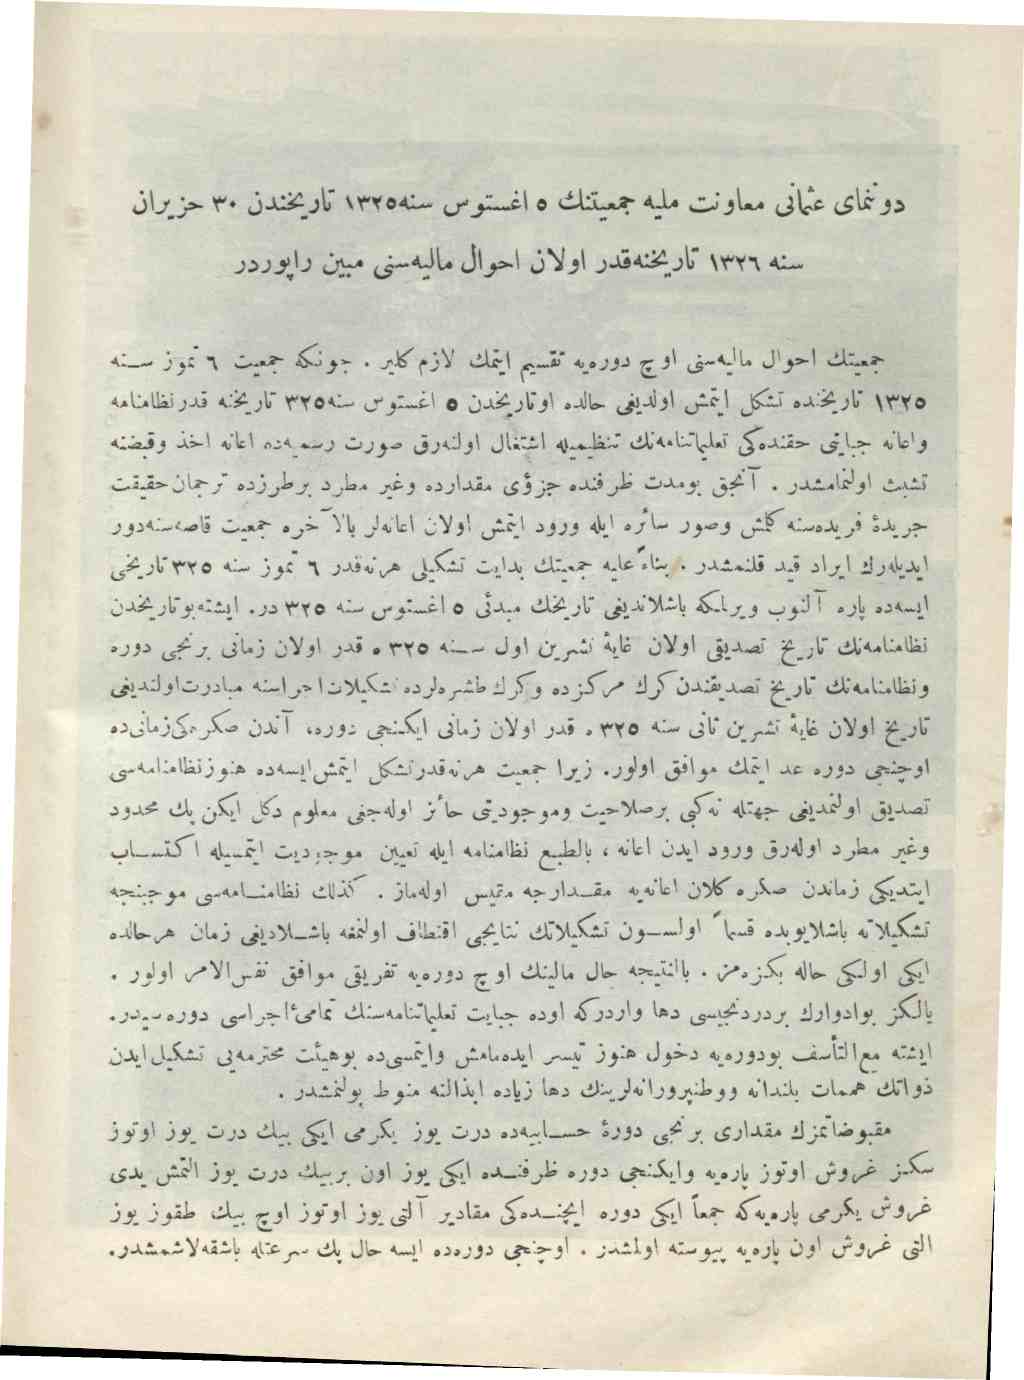 دوننمای عثمانی معاونت ملیه جمعیتنك ٥ اغستوس سنه ١٣٢٥ تاریخندن ٣٠ حزیران
سنه ١٣٢٦ تاریخنه قدر اولان احوال مالیه سنی مبین راپوردر
جمعیتك احوال مالیه سنی اوچ دوره یه تقسیم ایتمك لازم كلیر . چونكه جمعیت ٦ تموز سنه
١٣٢٥ تاریخنده تشكل ایتمش اولدیغی حالده اوتاریخدن ٥ اغستوس سنه ٣٢٥ تاریخنه قدر نظامنامه
واعانه جبایتی حقنده كی تعلیماتنامه نك تنظیمیله اشتغال اولنه رق صورت رسمیه ده اعانه اخذ وقبضنه
تشبث اولنمامشدر . آنجق بومدت ظرفنده جزؤی مقدارده وغیر مطرد برطرزده ترجمان حقیقت
جریدۀ فریده سنه كلمش وصور سائره ایله ورود ایتمش اولان اعانه لر بالآخره جمعیت قاصه سنه دور
ایدیله رك ایراد قید قلنمشدر . بناءً علیه جمعیتك بدایت تشكیلی هرنه قدر ٦ تموز سنه ٣٢٥ تاریخی
ایسه ده پاره آلنوب ویرلمكه باشلاندیغی تاریخك مبدئی ٥ اغستوس سنه ٣٢٥ در. ایشته بوتاریخدن
نظامنامه نك تاریخ تصدیقی اولان غایۀ تشرین اول سنه ٣٢٥ ه قدر اولان زمانی برنجی دوره
ونظامنامه نك تاریخ تصدیقندن كرك مركزده وكرك طشره لرده تشكیلات اجراسنه مبادرت اولندیغی
تاریخ اولان غایۀ تشرین ثانی سنه ٣٢٥ ه قدر اولان زمانی ایكنجی دوره، آندن صكره كی زمانی ده
اوچنجی دوره عد ایتمك موافق اولور. زیرا جمعیت هرنه قدر تشكل ایتمش ایسه ده هنوز نظامنامه سی
تصدیق اولنمدیغی جهتله نه كبی برصلاحیت وموجودیتی حائز اوله جغی معلوم دكل ایكن پك محدود
وغیر مطرد اوله رق ورود ایدن اعانه ، بالطبع نظامنامه ایله تعیین موجودیت ایتمسیله اكتساب
ایتدیكی زماندن صكره كلان اعانه یه مقدارجه مقیس اوله ماز . كذلك نظامنامه سی موجبنجه
تشكیلاته باشلایوبده قسماً اولسون تشكیلاتك نتایجی اقتطاف اولنمغه باشلادیغی زمان هرحالده
ایكی اولكی حاله بكزه مز . بالنتیجه حال مالینك اوچ دوره یه تفریقی موافق نفس الامر اولور .
یالكز بوادوارك بردردنجیسی دها واردركه اوده جبایت تعلیماتنامه سنك تمامیٔ اجراسی دوره سیدر.
ایشته مع التأسف بودوره یه دخول هنوز تیسر ایده مامش وایتمسی ده بوهیئت محترمه یی تشكیل ایدن
ذواتك همات بلندانه ووطنپرورانه لرینك دها زیاده ابذالنه منوط بولنمشدر .
مقبوضاتمزك مقداری برنجی دورۀ حسابیه ده درت یوز یكرمی ایكی بیك درت یوز اوتوز
سكز غروش اوتوز پاره یه وایكنجی دوره ظرفنده ایكی یوز اون بربیك درت یوز التمش یدی
غروش یكرمی پاره یه كه جمعاً ایكی دوره ایچنده كی مقادیر آلتی یوز اوتوز اوچ بیك طقوز یوز
التی غروش اون پاره یه پیوسته اولمشدر . اوچنجی دوره ده ایسه حال پك سرعتله باشقه لاشمشدر.